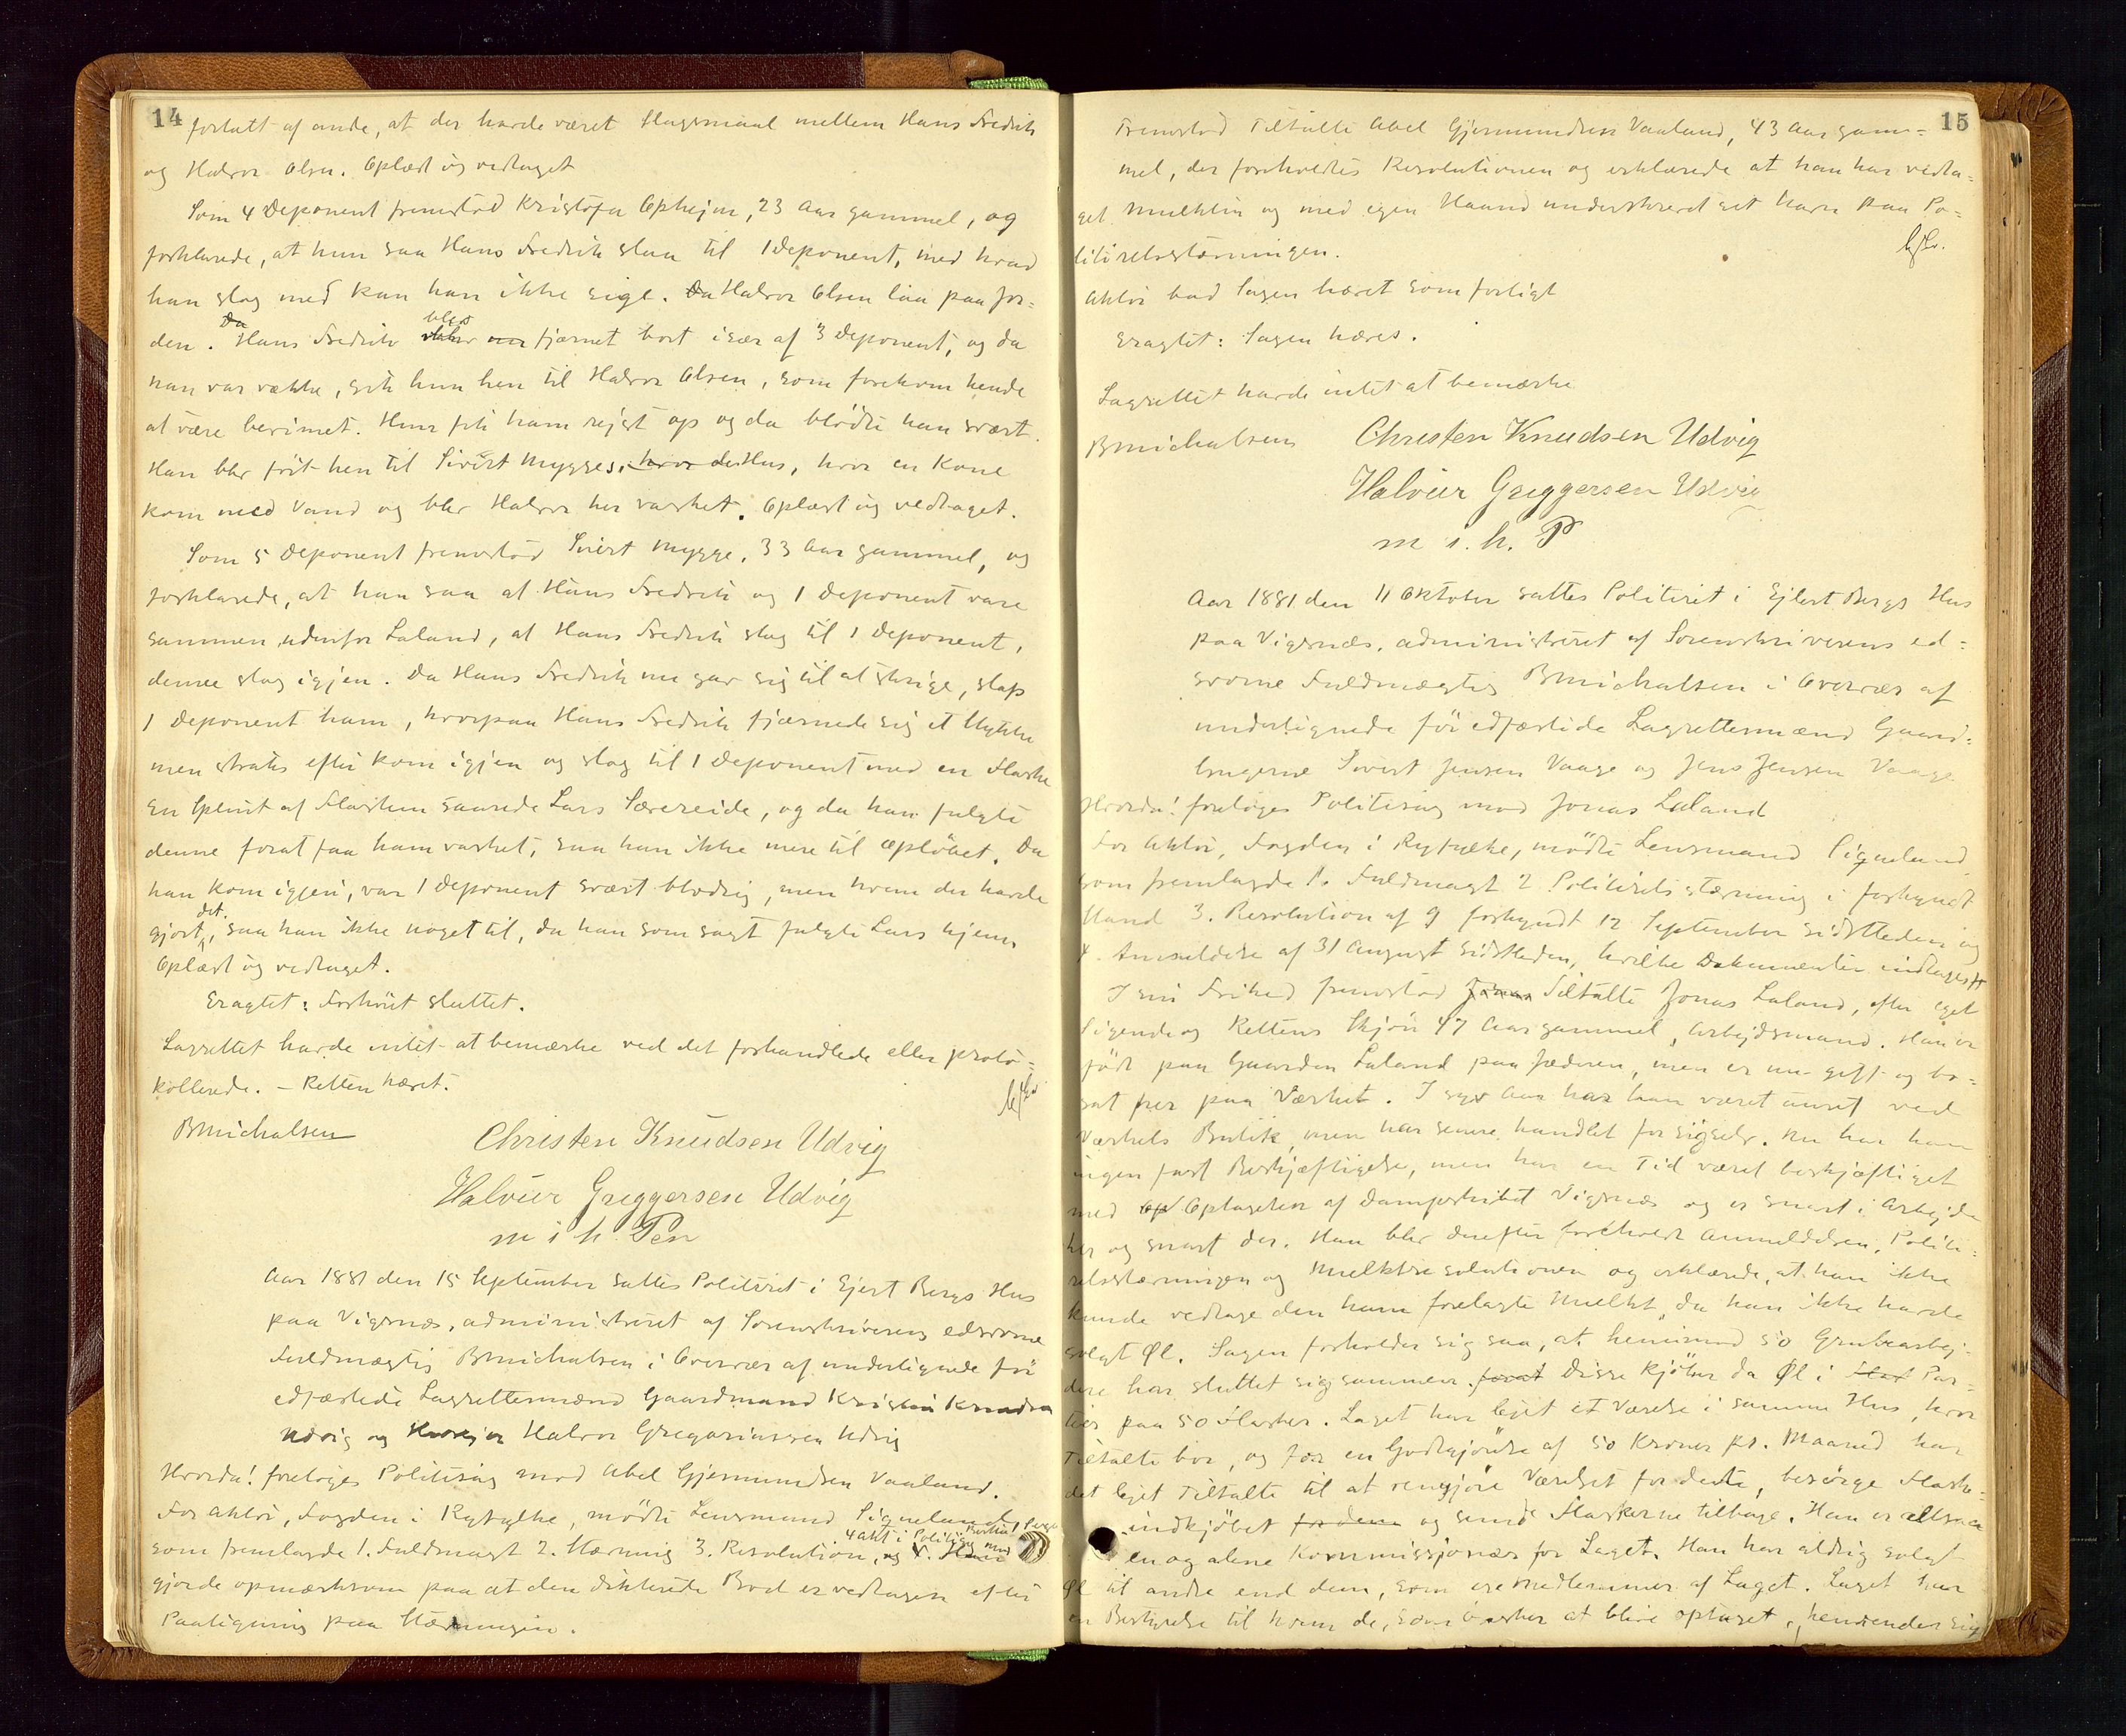 14
fortalt af andre, at der havde været Slagsmaal mellem Hans Fredrik
og Halvor Olsen. Oplæst og vedtaget
Som 4 Deponent fremstod Kristofa Opheim, 23 Aar gammel, og
forklarede, at hun saa Hans Fredrik slaa til 1 Deponent, med hvad
han slog med kan han ikke sige. Da Halvor Olsen laa paa Jor=
den. Hans Fredrik blev fjærnet bort især af 3 Deponent, og da
han var vække, gik hun hen til Halvor Olsen, som forekom hende
at være besvimet. Hun fik ham rejst op og da blödte han svært.
Han blev fört hen til Sivert Mygges Hus, hvor en Kone
kom med Vand og blev Halvor her vasket. Oplæst og vedtaget.
Som 5 Deponent fremstod Sivert Mygge, 33 Aar gammel, og
forklarede, at han saa at Hans Fredrik og 1 Deponent vare
sammen udenfor Laland, at Hans Fredrik slog til 1 Deponent,
denne slog igjen. Da Hans Fredrik nu gav sig til at skrige, slap
1 Deponent ham, hvorpaa Hans Fredrik fjærnede sig et Stykke
men straks efter kom igjen og slog til 1 Deponent med en Flaske
En Splint af Flasken saarede Lars Særereide, og da han fulgte
denne forat faa ham vasket, saa han ikke mere til Opløbet. Da
han kom igjen, var 1 Deponent svært blodig, men hvem der havde
gjort det, saa han ikke noget til, da han som sagt fulgte Lars hjem.
Oplæst og vedtaget.
Eragtet: Forhöret sluttet.
Lagrettet havde intet at bemærke ved det forhandlede eller proto=
kollerede. – Retten hævet.
BMichalsen
Christen Knudsen Udvig
Halvier Greggersen Udvig
m i h. Pen
Aar 1881 den 15 September sattes Politiret i Ejert Bergs Hus
paa Vigsnæs, administreret af Sorenskriverens edsvorne
Fuldmægtig BMichalsen i Overvær af undertegnede för
edfæstede Lagrettesmænd Gaardmand Kristen Knudsen
Udvig og Halvor Gregoriussen Udvig
Hvorda! foretoges Politisag mod Abel Gjermundsen Vaaland.
For Aktor, Fogden i Ryfylke, mødte Lensmand Signeland
som fremlagde 1. Fuldmagt 2. Stævning 3. Resolution, 4 Akt i Politisag mod
gjorde opmærksom paa at den dikterede Bod er vedtagen efter
Paategning paa Stævningen.
15
Fremstod Tiltalte Abel Gjermundsen Vaaland, 43 Aar gam=
mel, der foreholdtes Resolutionen og erklærede at han har vedta=
get Mulkten og med egen Haand underskrevet sit Navn paa Po=
litiretsstævningen.
Aktor bad Sagen hævet som forligt
Eragtet: Sagen hæves.
Lagrettet havde intet at bemærke
BMichalsen
Christen Knudsen Udvig
Halvier Greggersen Udvig
m i. h. P
Aar 1881 den 11 Oktober sattes Politiret i Ejlert Bergs Hus
paa Vigsnæs, administreret af Sorenskriverens ed=
svorne Fuldmægtig BMichalsen i Overvær af
undertegnede för edfæstede Lagrettesmænd Gaard=
brugerne Sivert Jensen Vaage og Jens Jensen Vaage
Hvorda! foretoges Politisag mod Jonas Laland
For Aktor, Fogden i Ryfylke, mödte Lensmand Signeland
som fremlagde 1. Fuldmagt 2 Politiretsstævning i forkyndt
Stand 3. Resolution af 9 forkyndt 12 September sidstleden og
4. Anmeldelse af 31 August sidstleden, hvilke Dokumenter indtages
I sin Frihed fremstod Tiltalte Jonas Laland, efter eget
Sigende og Rettens Skjön 47 Aar gammel, Arbejdsmand. Han er
födt paa Gaarden Laland paa Jæderen, men er nu gift og bo=
sat her paa Værket. I syv Aar har han været ansat ved
Værkets Butik, men har senere handlet for sigselv. Nu har han
ingen fast Beskjæftigelse, men har en Tid været beskjæftiget
med Optagelsen af Dampskibet Vigsnæs og er snart i Arbejde
her og snart der. Han blev derefter foreholdt Anmeldelsen, Politi=
retsstævningen og Mulktsresolutionen og erklærede, at han ikke
kunde vedtage den ham forelagte Mulkt, da han ikke havde
solgt Øl. Sagen forholder sig saa, at henimod 50 Grubearbej=
dere har sluttet sig sammen. Disse kjöber da Øl i Par=
tier paa 50 Flasker. Laget har lejet et Værelse i samme Hus, hvor
Tiltalte bor, og for en Godtgjörelse af 50 Kroner pr. Maaned har
det lejet Tiltalte til at rengjöre Værelset for dette, besörge Flaske=
indkjöbet og sende Flaskerne tilbage. Han er altsaa
en og alene Kommissjonær for Laget. Han har aldrig solgt
Øl til andre end dem, som ere Medlemmer af Laget. Laget har
en Bestyrelse til hvem de, som önsker at blive optaget, henvender sig